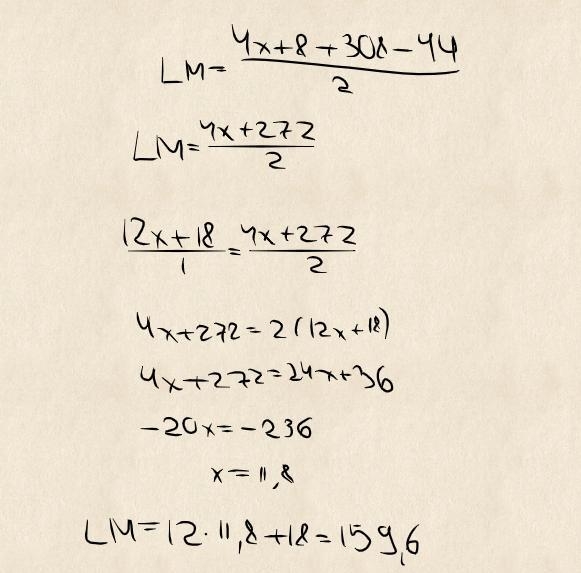 LM = (4x+8+308-44)/2
LM = (4x+272)/2
(12x+18)/1 = (4x+272)/2
4x+272 = 2(12x+18)
4x+272 = 24x+36
-20x = -236
x = 11,8
LM = 12·11,8+18 = 159,6